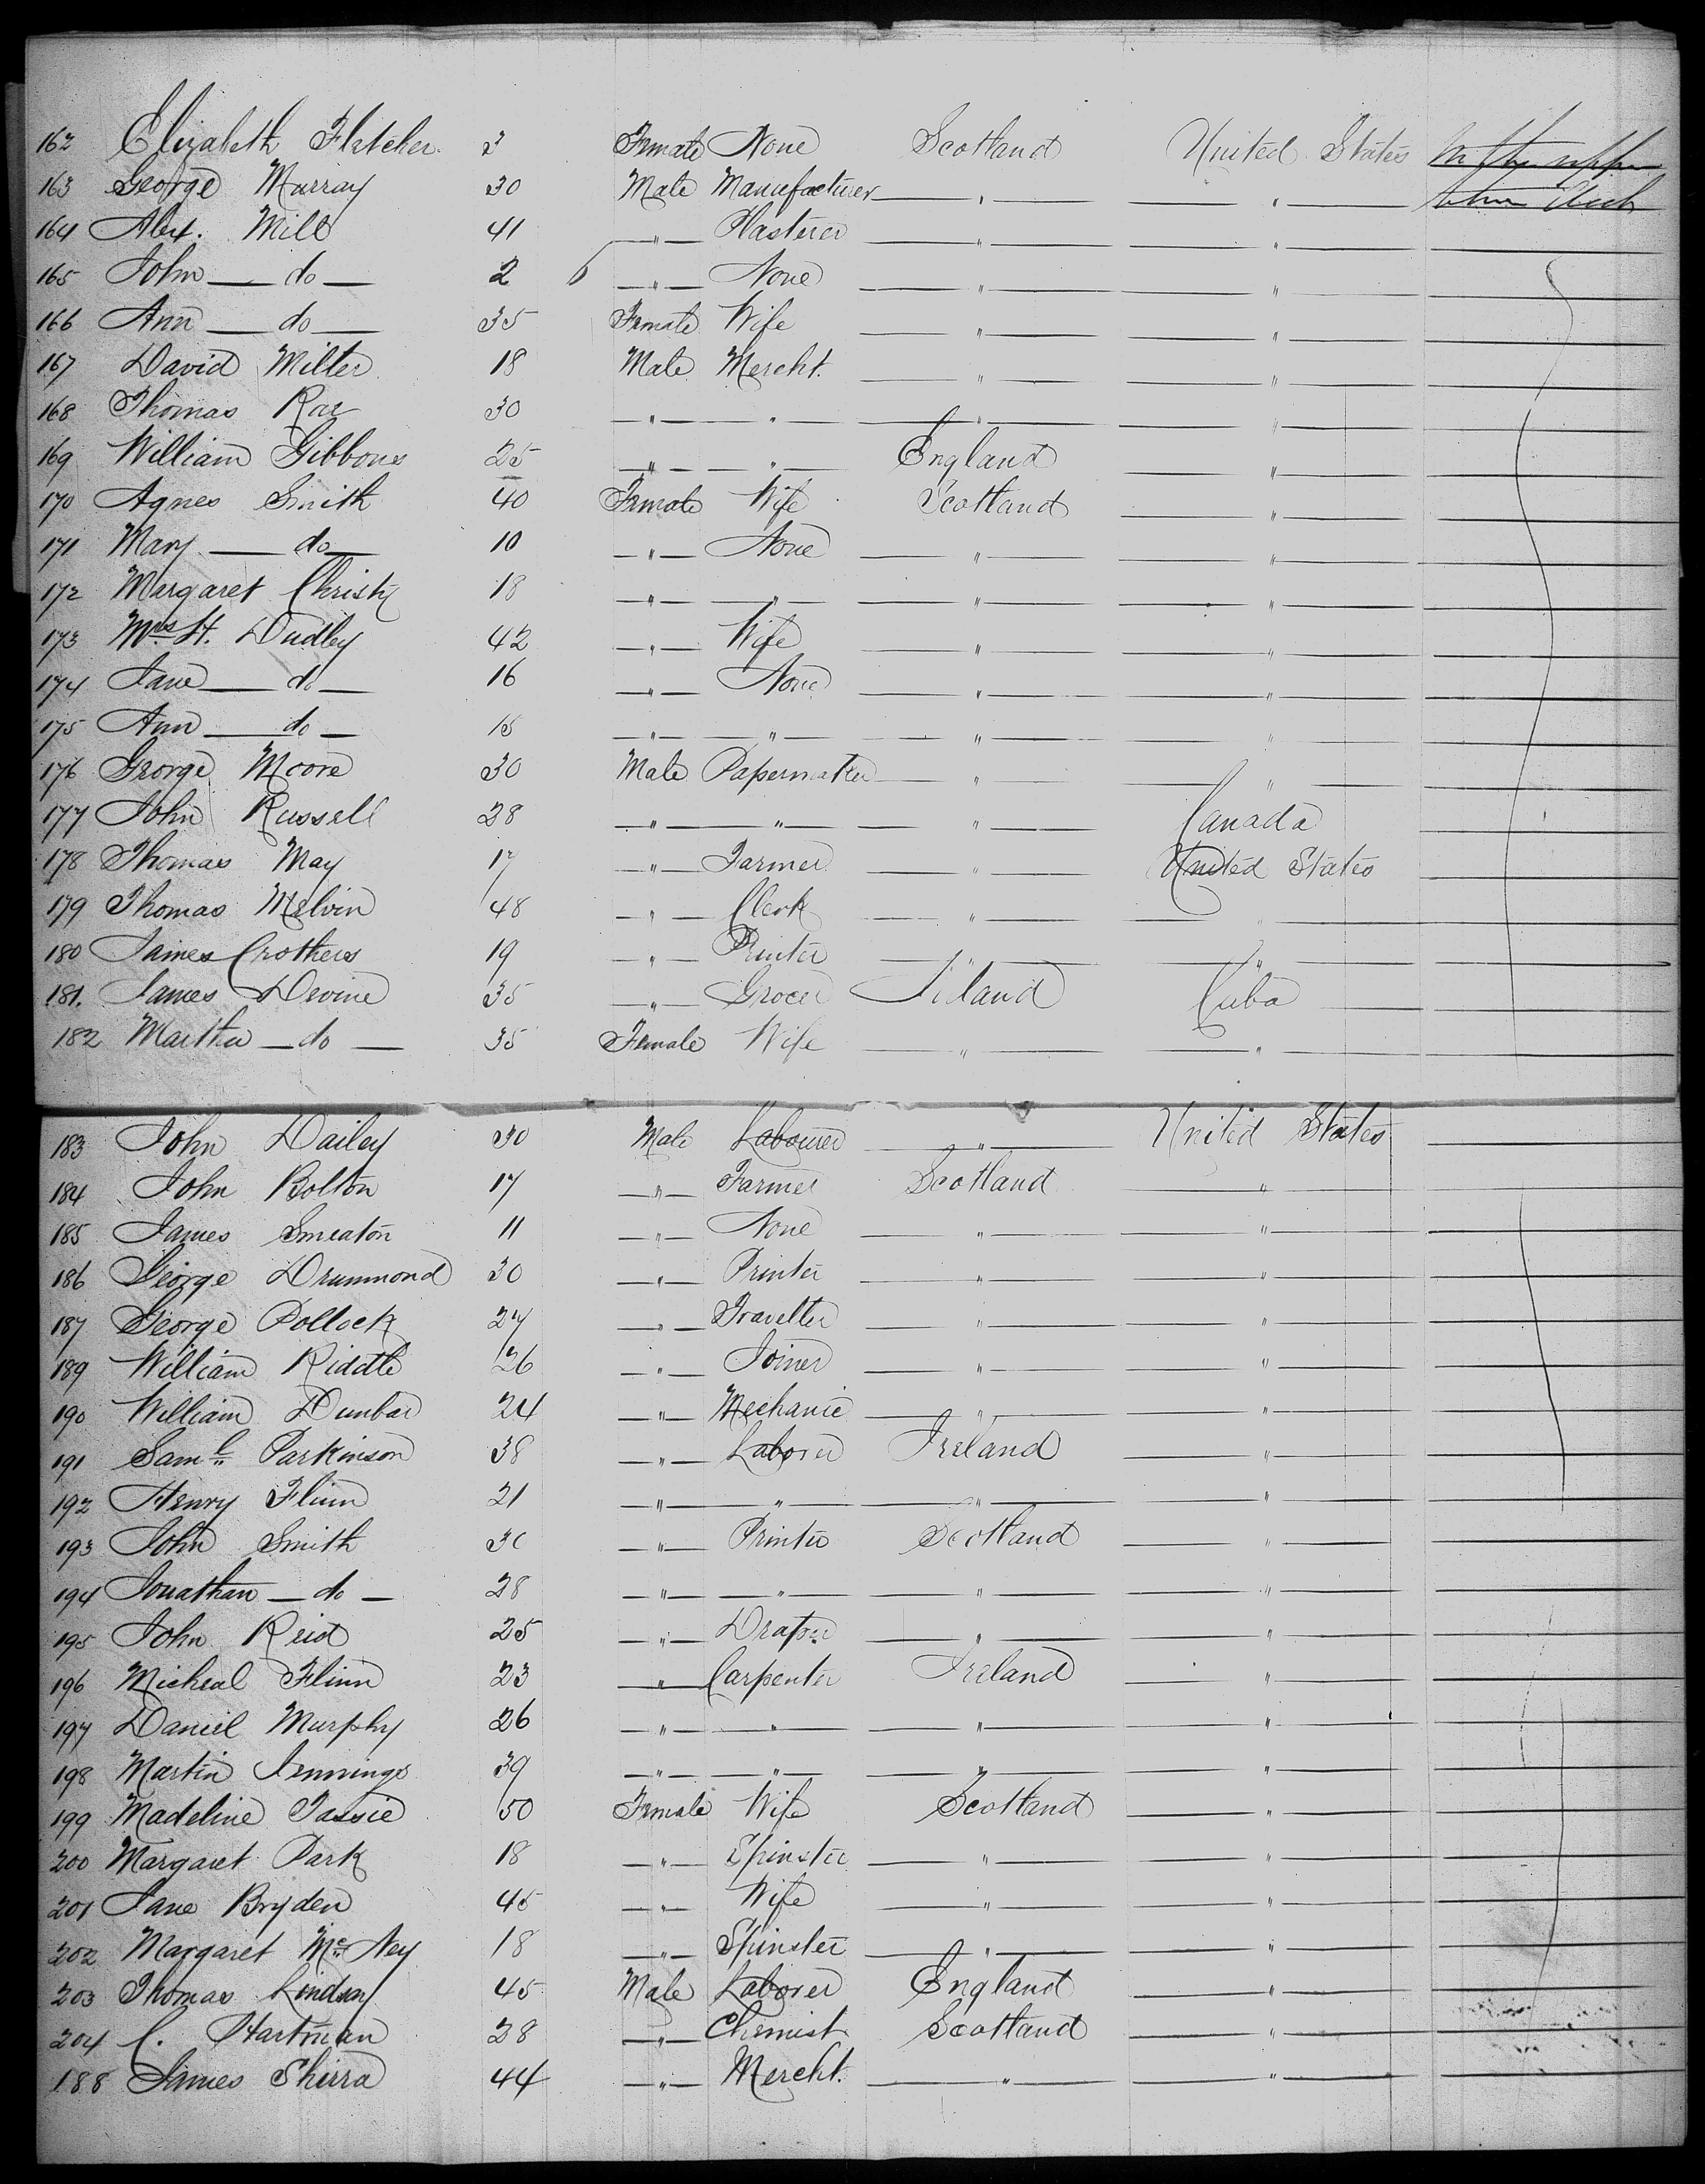 162 Elizabeth Fletcher 3 Female None Scotland United States
163 George Murray 30 Male Manufacturer " "
164 Alex. Mill 41 " Plasterer " "
165 John do 2 " None " "
166 Ann do 35 Female Wife " "
167 David Miller 18 Male Mercht. " "
168 Thomas Rae 30 " " " "
169 William Gibbons 25 " " England "
170 Agnes Smith 40 Female Wife Scotland "
171 Mary do 10 " None " "
172 Margaret Christy 18 " " " "
173 Mrs H. Dudley 42 " Wife " "
174 Jane do 16 " None " "
175 Ann do 15 " " " "
176 George Moore 30 Male Papermaker " "
177 John Russell 28 " " " Canada
178 Thomas May 17 " Farmer " United States
179 Thomas Melvin 48 " Clerk " "
180 James Crothers 19 " Printer " "
181. James Devine 35 " Grocer Ireland Cuba
182 Martha do 35 Female Wife " "
183 John Dailey 30 Male Labourer " United States
184 John Bolton 17 " Farmer Scotland "
185 James Smeaton 11 " None " "
186 George Drummond 30 " Printer " "
187 George Pollock 24 " Traveller " "
189 William Riddle 26 " Joiner " "
190 William Dunbar 24 " Mechanic " "
191 Saml. Parkinson 38 " Laborer Ireland "
192 Henry Flinn 21 " " " "
193 John Smith 30 " Printer Scotland "
194 Jonathan do 28 " " " "
195 John Reid 25 " Draper " "
196 Micheal Flinn 23 " Carpenter Ireland "
197 Daniel Murphy 26 " " " "
198 Martin Jennings 39 " " " "
199 Madeline Tassie 50 Female Wife Scotland "
200 Margaret Park 18 " Spinster " "
201 Jane Bryden 45 " Wife " "
202 Margaret Mc Ney 18 " Spinster " "
203 Thomas Lindsay 45 Male Laborer England "
204 C. Hartman 28 " Chemist Scotland "
188 James Shirra 44 " Mercht. " "